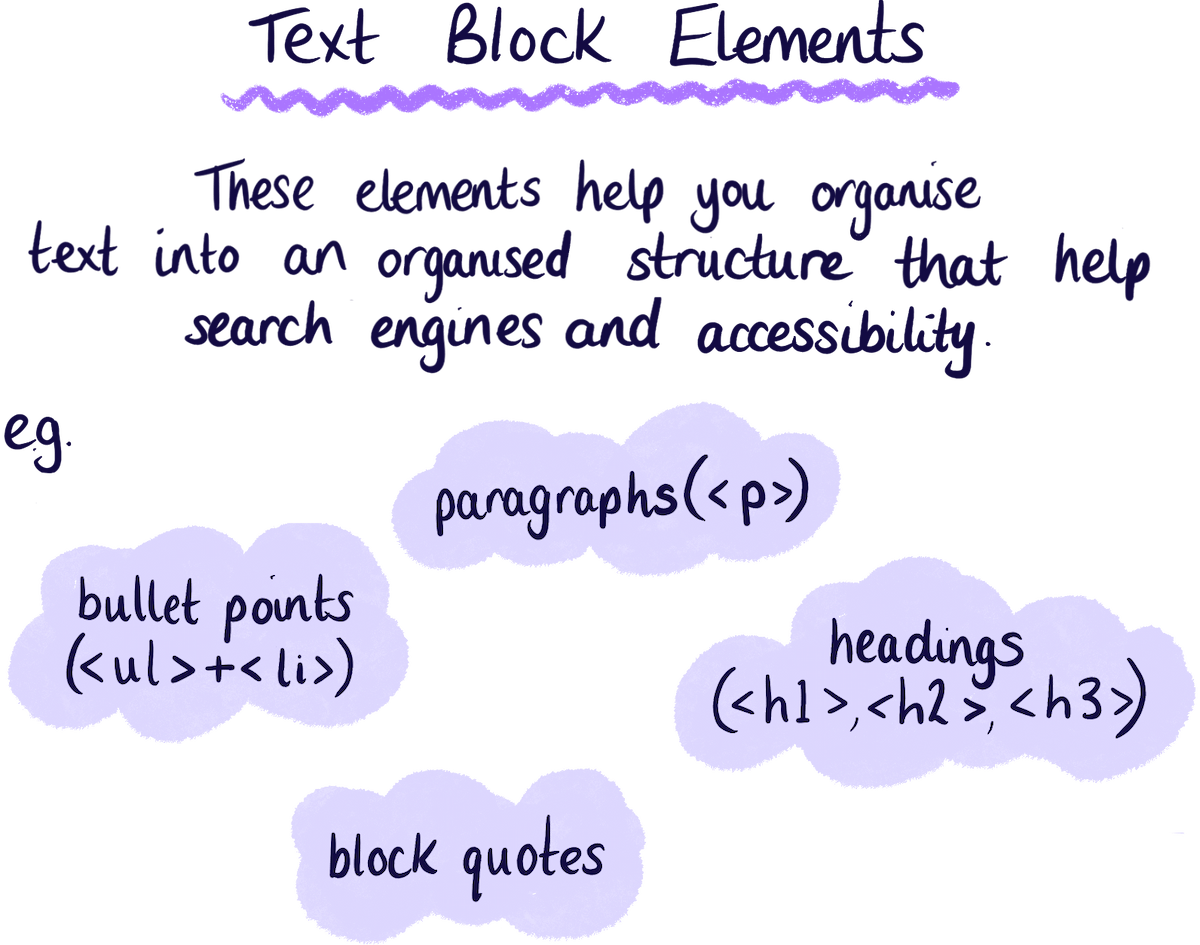 Text Block Elements
These elements help you organise
text into an organised structure that help
search engines and accessibility.
eg.
paragraphs(<p>)
bullet points
(<ul>+<li>)
headings
(<h1>,<h2>,<h3>)
block quotes